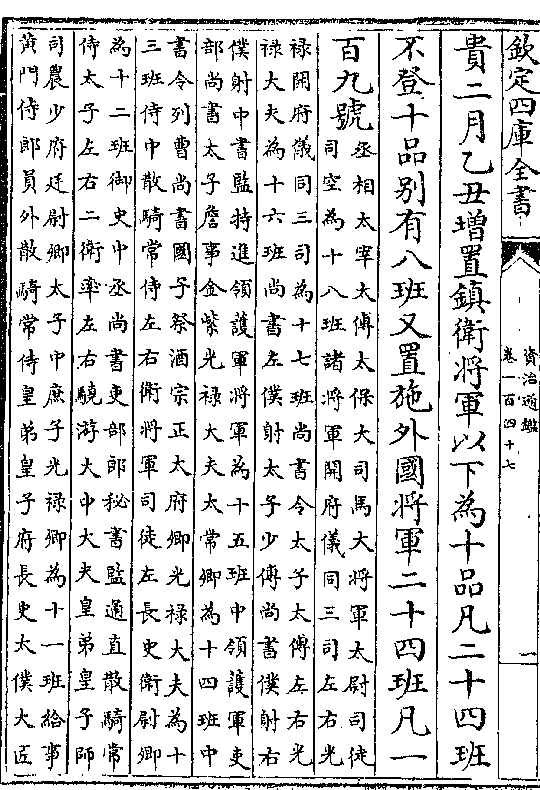 欽定四庫全書
資治通鑑
卷一百四十七
一
貴二月乙丑增置鎮衛將軍以下為十品凡二十四班
不登十品别有八班又置施外國將軍二十四班凡一
百九號
丞相太宰太傅太保大司馬大將軍太尉司徒
司空為十八班諸將軍開府儀同三司左右光
禄開府儀同三司為十七班尚書令太子太傅左右光
禄大夫為十六班尚書左僕射太子少傅尚書僕射右
僕射中書監特進領護軍將軍為十五班中領護軍吏
部尚書太子詹事金紫光禄大夫太常卿為十四班中
書令列曹尚書國子祭酒宗正太府卿光禄大夫為十
三班侍中散騎常侍左右衛將軍司徒左長史衛尉卿
為十二班御史中丞尚書吏部郎秘書監通直散騎常
侍太子左右二衛率左右驍游大中大夫皇弟皇子師
司農少府廷尉卿太子中庶子光禄卿為十一班給事
黄門侍郎員外散騎常侍皇弟皇子府長史太僕大匠